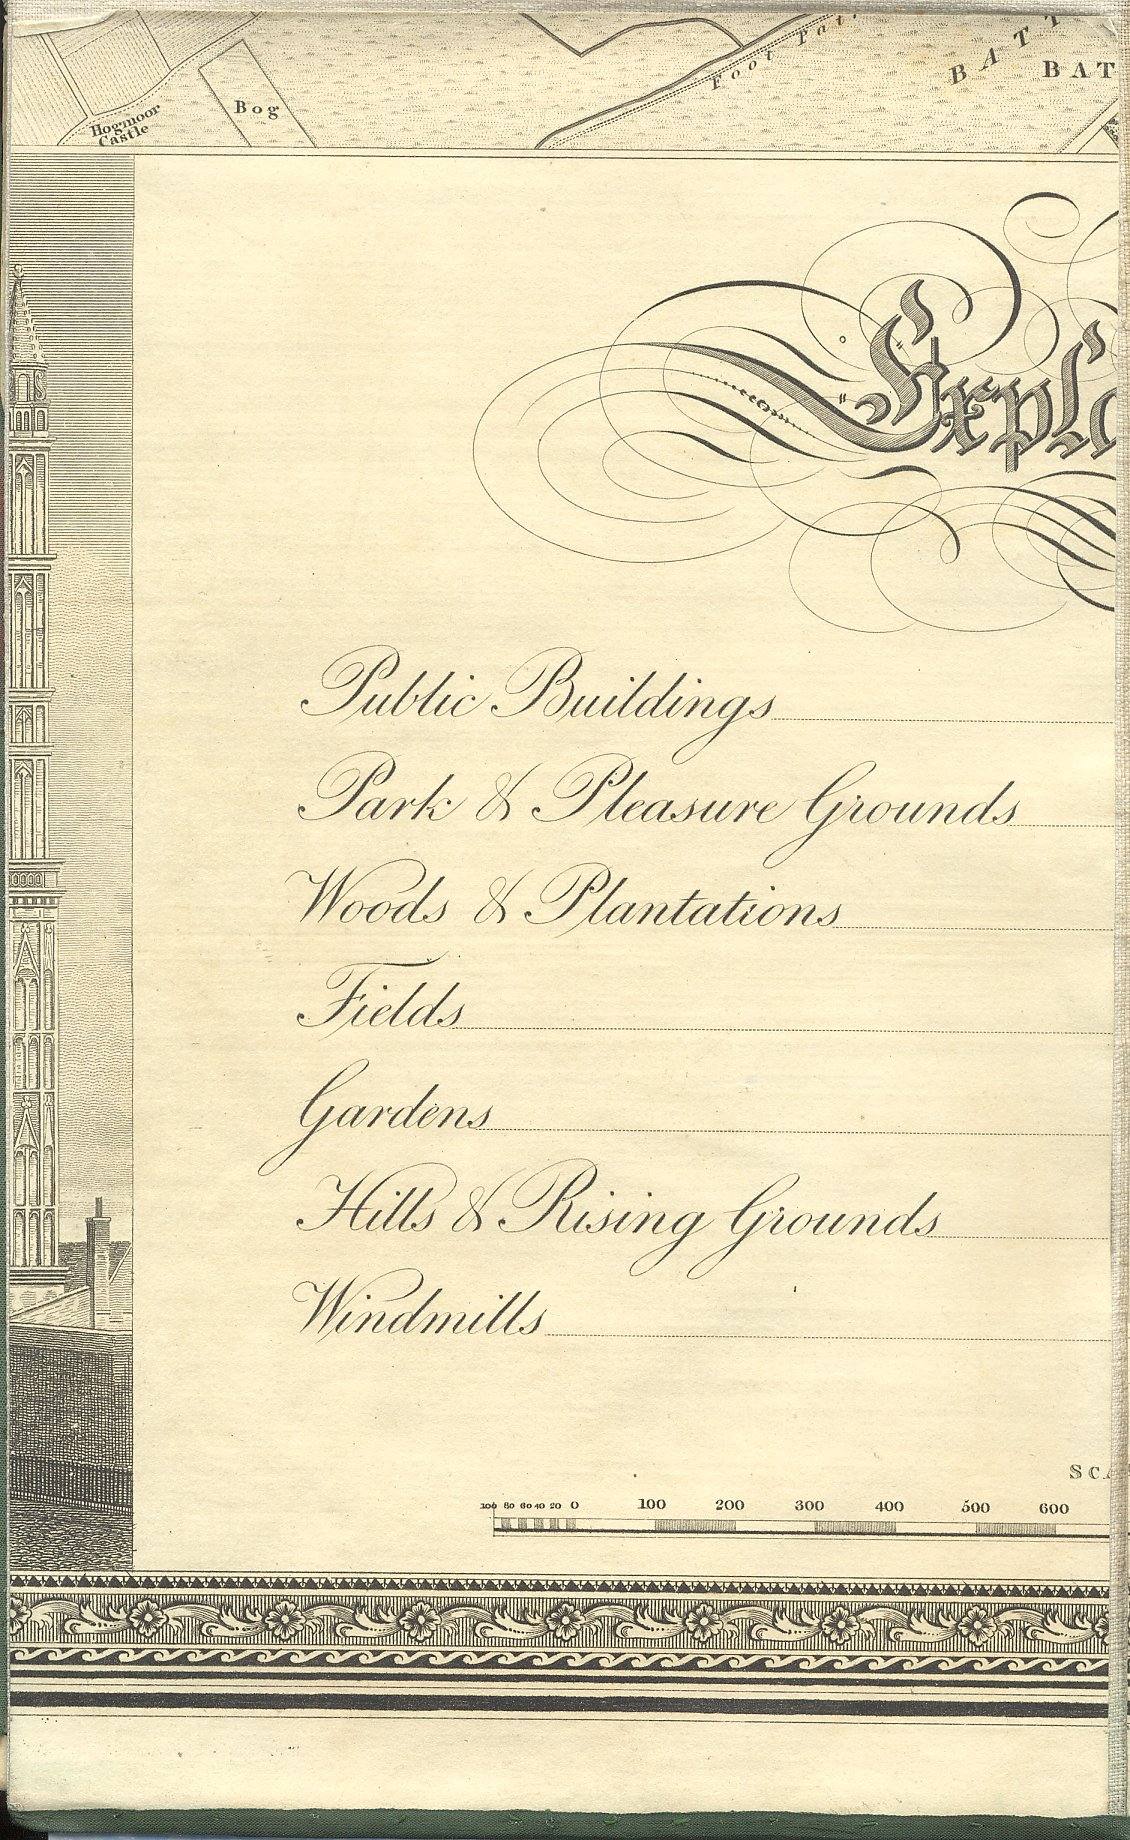 Foot Pat
BATT
BAT
Bog
Hogmoor
Castle
Expla
Public Buildings
Park & Pleasure Grounds
Woods & Plantations
Fields
Gardens
Hills & Rising Grounds
Windmills
SCA
100 80 60 40 20 0 100 200 300 400 500 600